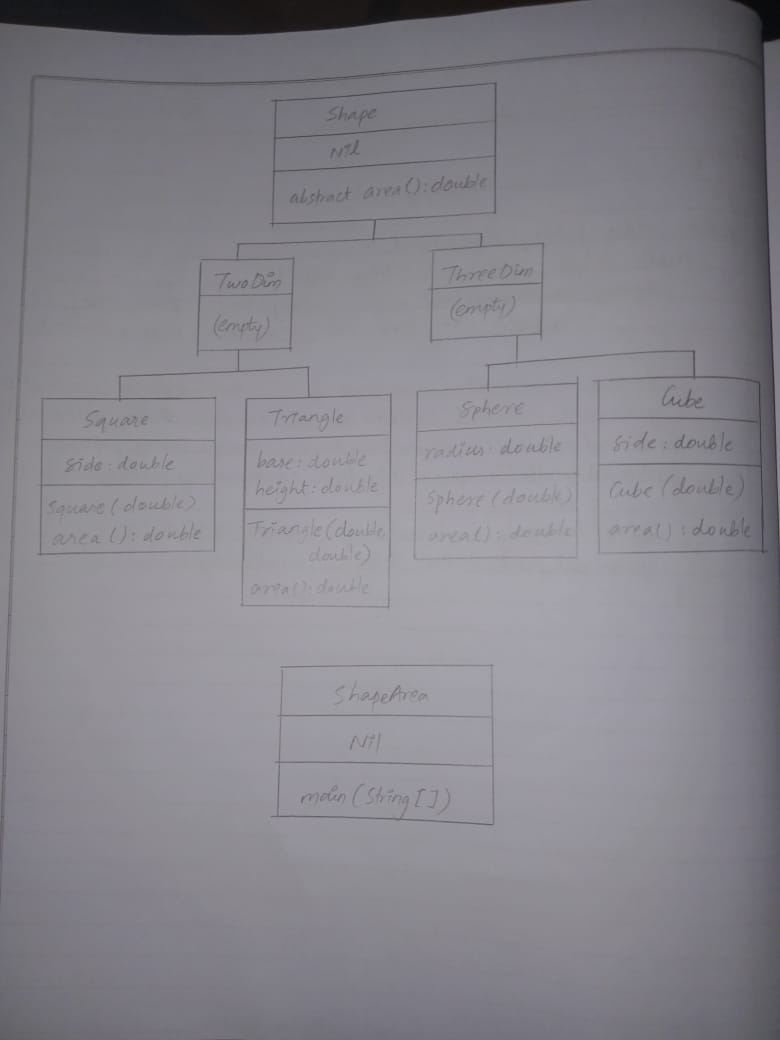 Shape
Nil
abstract area(): double
TwoDim
(empty)
ThreeDim
(empty)
Square
side: double
Square(double)
area(): double
Triangle
base: double
height: double
Triangle(double,
double)
area(): double
Sphere
radius: double
Sphere(double)
area(): double
Cube
side: double
Cube(double)
area(): double
ShapeArea
Nil
main(String[])